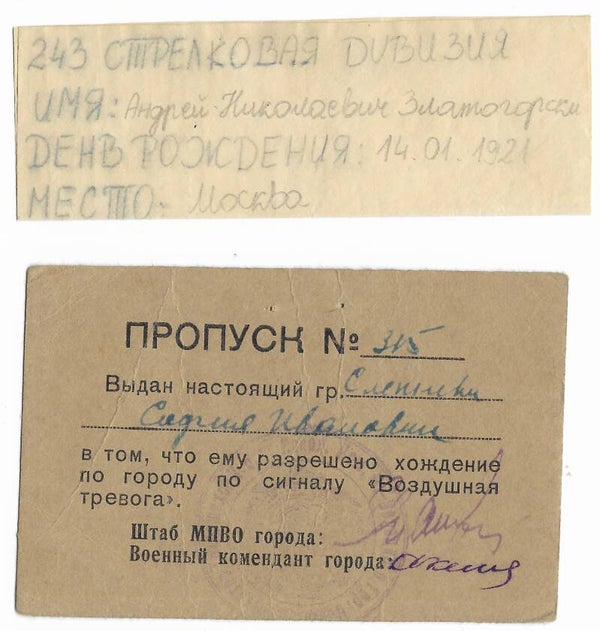 243 СТРЕЛКОВАЯ ДИВИЗИЯ
ИМЯ: Андрей Николаевич Златогорски
ДЕНВ РОЖДЕНИЯ: 14.01.1921
МЕСТО: Москва
ПРОПУСК № 315
Выдан настоящий гр.
София Ивановни
в том, что ему разрешено хождение
по городу по сигналу «Воздушная
тревога».
Штаб МПВО города:
Военный комендант города: